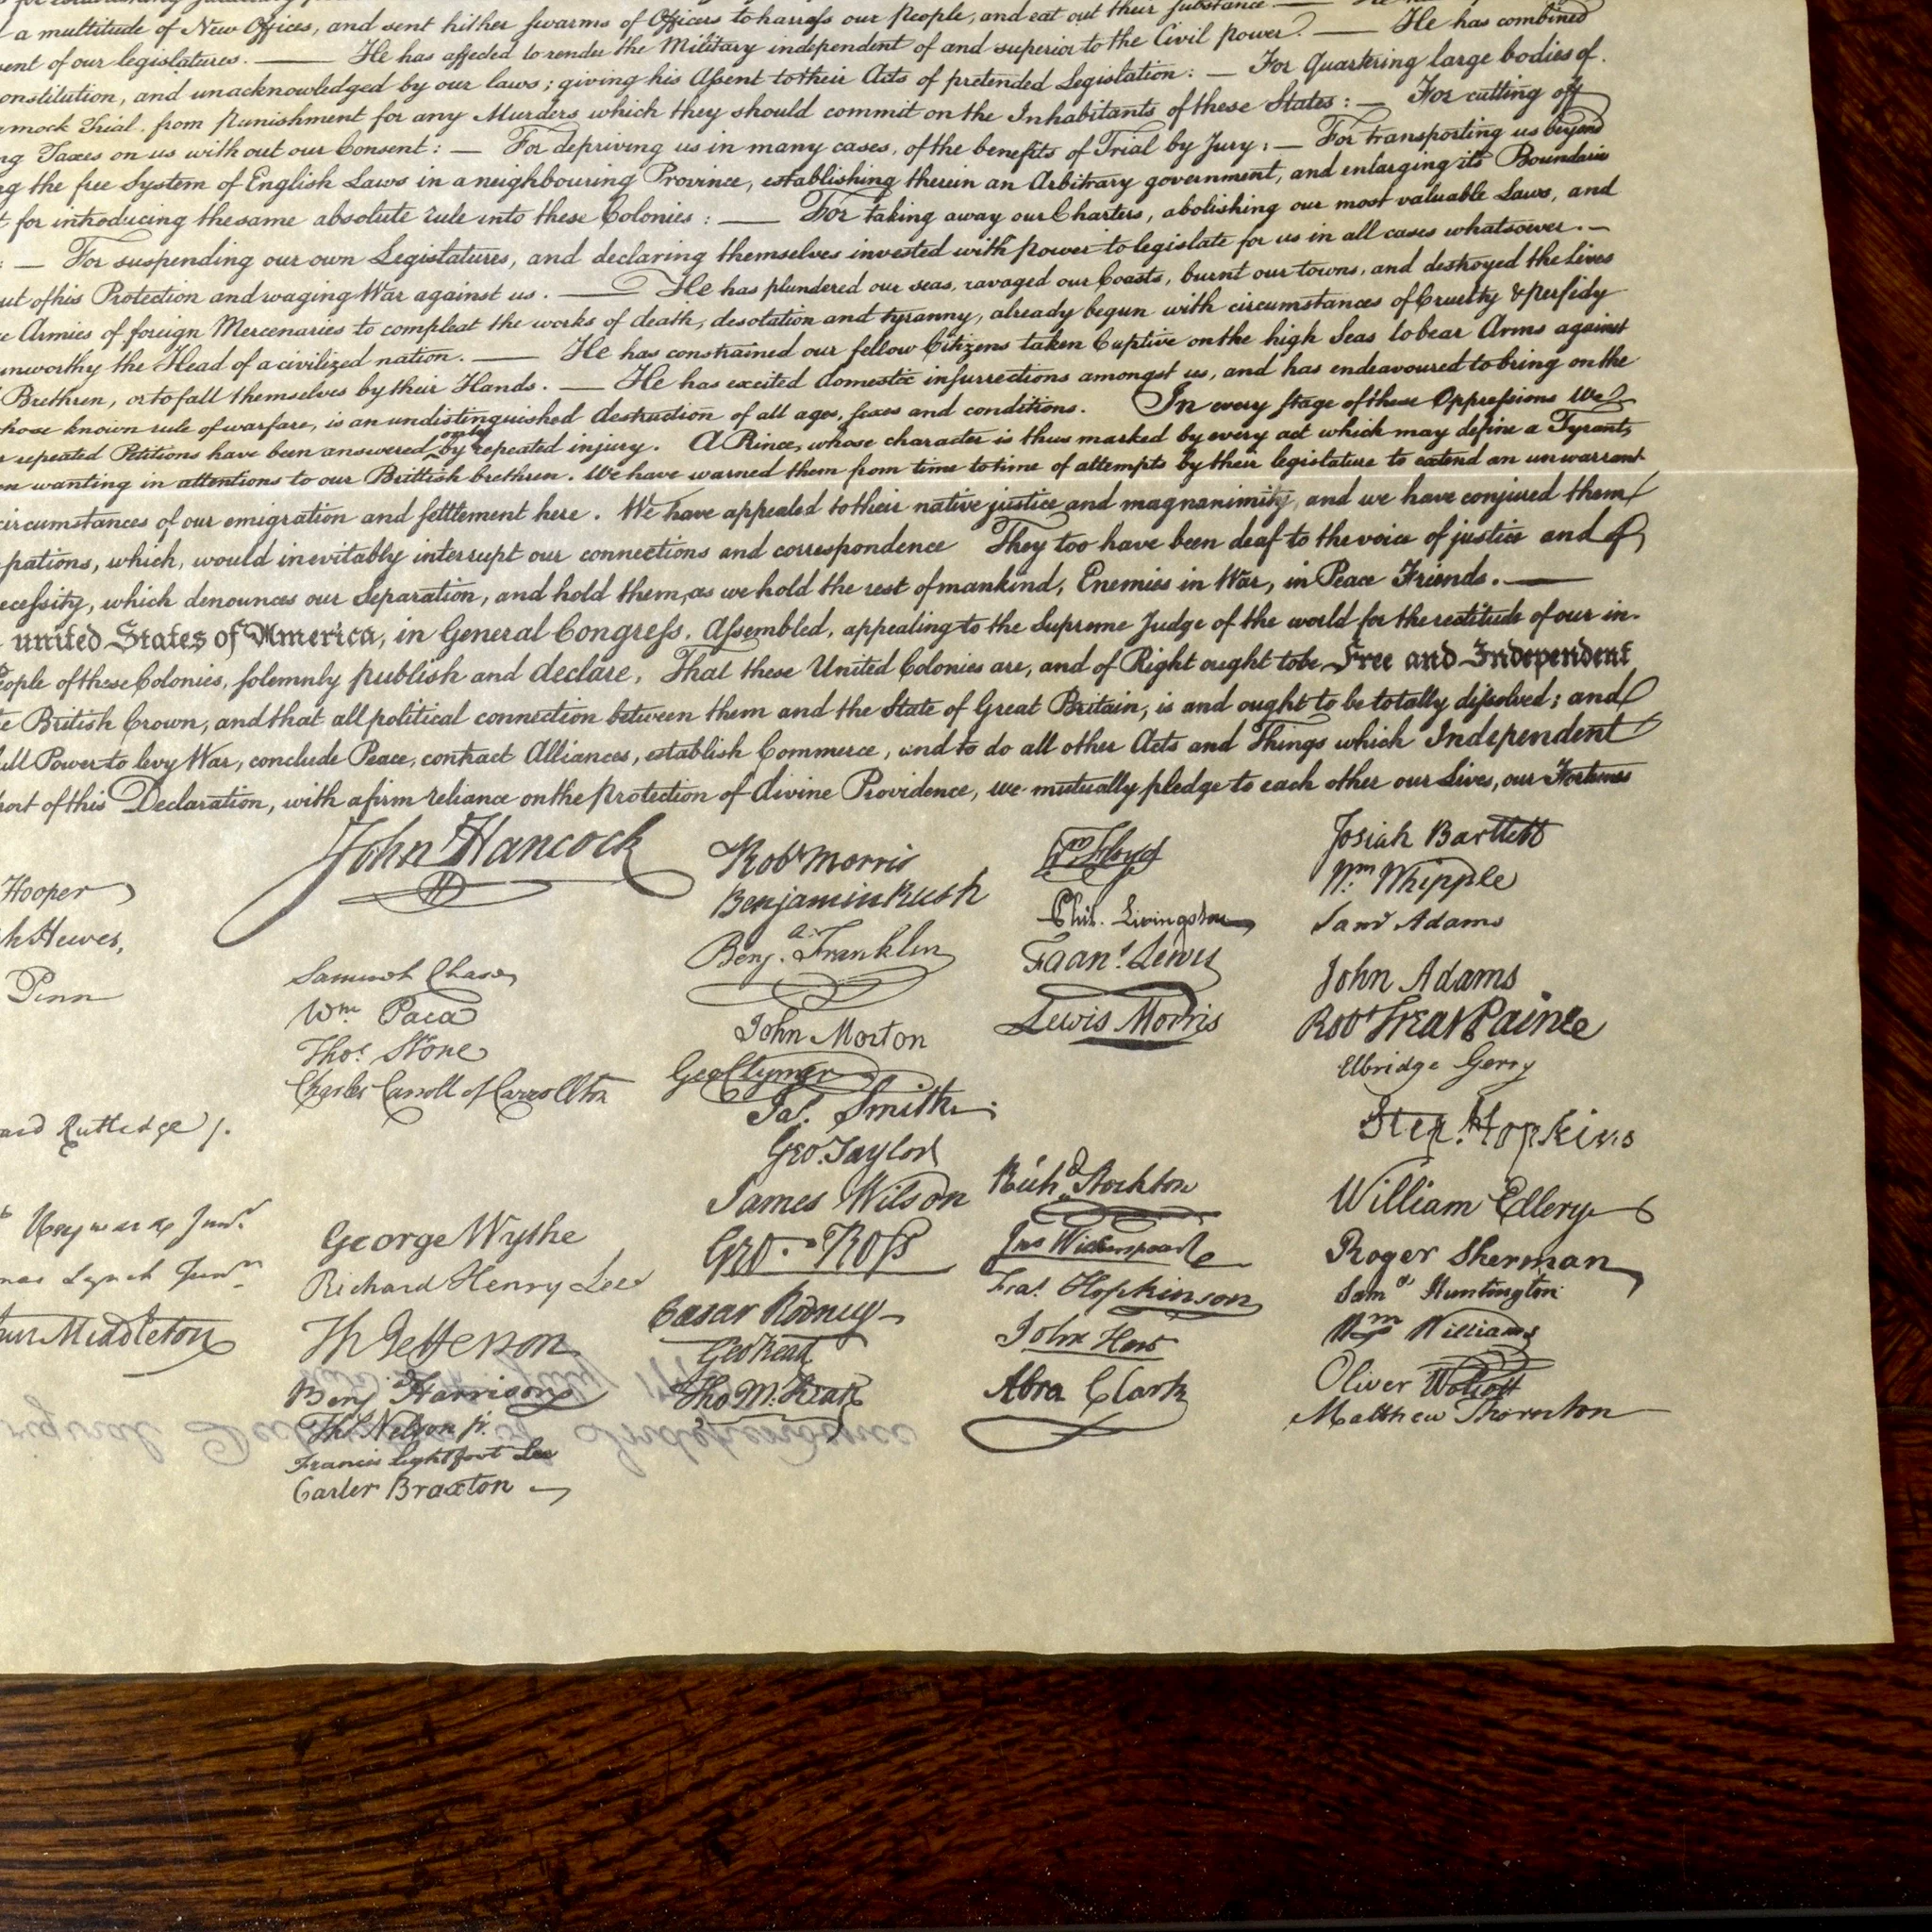 a multitude of New Offices, and sent hither swarms of Officers to harrass our People, and eat out their substance —
ent of our legislatures. — He has affected to render the Military independent of and superior to the Civil power. — He has combined
onstitution, and unacknowledged by our laws; giving his Assent to their Acts of pretended Legislation: — For Quartering large bodies of
mock Trial, from punishment for any Murders which they should commit on the Inhabitants of these States: — For cutting off
ng Taxes on us without our Consent: — For depriving us in many cases, of the benefits of Trial by Jury: — For transporting us beyond
ng the free System of English Laws in a neighbouring Province, establishing therein an Arbitrary government, and enlarging its Boundaries
t for introducing the same absolute rule into these Colonies: — For taking away our Charters, abolishing our most valuable Laws, and
: — For suspending our own Legislatures, and declaring themselves invested with power to legislate for us in all cases whatsoever. —
ut of his Protection and waging War against us. — He has plundered our seas, ravaged our Coasts, burnt our towns, and destroyed the lives
e Armies of foreign Mercenaries to compleat the works of death, desolation and tyranny, already begun with circumstances of Cruelty & perfidy
unworthy the Head of a civilized nation. — He has constrained our fellow Citizens taken Captive on the high Seas to bear Arms against
Brethren, or to fall themselves by their Hands. — He has excited domestic insurrections amongst us, and has endeavoured to bring on the
hose known rule of warfare, is an undistinguished destruction of all ages, sexes and conditions. In every stage of these Oppressions We
r repeated Petitions have been answered only by repeated injury. A Prince, whose character is thus marked by every act which may define a Tyrant,
en wanting in attentions to our Brittish brethren. We have warned them from time to time of attempts by their legislature to extend an unwarrant
circumstances of our emigration and settlement here. We have appealed to their native justice and magnanimity, and we have conjured them
pations, which, would inevitably interrupt our connections and correspondence They too have been deaf to the voice of justice and of
ecessity, which denounces our Separation, and hold them, as we hold the rest of mankind, Enemies in War, in Peace Friends. —
united States of America, in General Congress, Assembled, appealing to the Supreme Judge of the world for the rectitude of our in-
eople of these Colonies, solemnly publish and declare, That these United Colonies are, and of Right ought to be Free and Independent
e British Crown, and that all political connection between them and the State of Great Britain, is and ought to be totally dissolved; and
ull Power to levy War, conclude Peace, contract Alliances, establish Commerce, and to do all other Acts and Things which Independent
port of this Declaration, with a firm reliance on the protection of divine Providence, we mutually pledge to each other our Lives, our Fortunes
Hooper
h Hewes,
Penn
ard Rutledge /.
Heyward Junr.
mas Lynch Junr.
hur Middleton
John Hancock
Samuel Chase
Wm. Paca
Thos. Stone
Charles Carroll of Carrollton
George Wythe
Richard Henry Lee
Th Jefferson
Benj Harrison
Thos Nelson jr.
Francis Lightfoot Lee
Carter Braxton
Robt Morris
Benjamin Rush
Benj. Franklin
John Morton
Geo Clymer
Jas. Smith.
Geo. Taylor
James Wilson
Geo. Ross
Caesar Rodney
Geo Read
Tho M:Kean
Wm Floyd
Phil. Livingston
Frans. Lewis
Lewis Morris
Richd. Stockton
Jno Witherspoon
Fras. Hopkinson
John Hart
Abra Clark
Josiah Bartlett
Wm. Whipple
Saml Adams
John Adams
Robt Treat Paine
Elbridge Gerry
Step. Hopkins
William Ellery
Roger Sherman
Saml Huntington
Wm Williams
Oliver Wolcott
Matthew Thornton